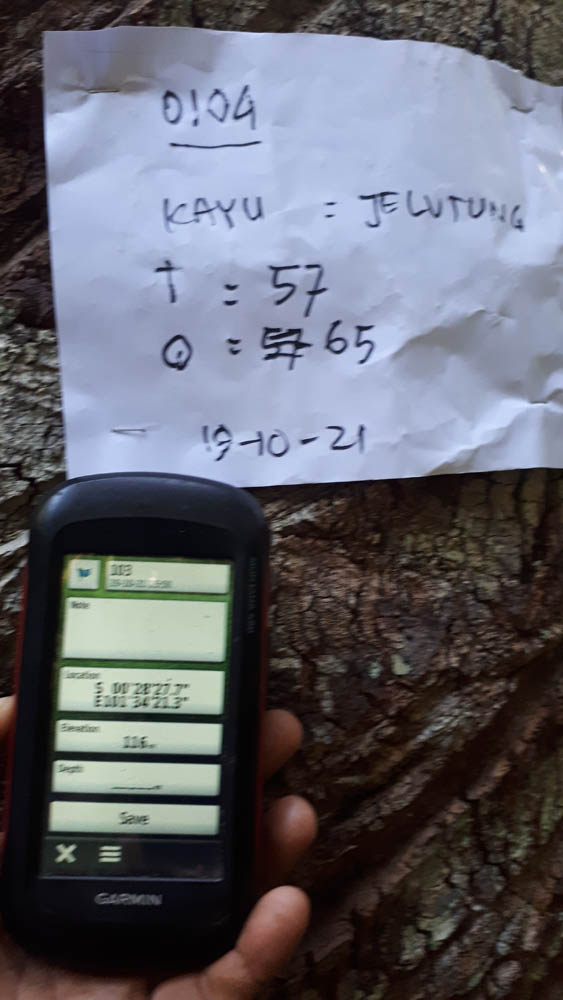 0104
KAYU = JELUTUNG
T = 57
Q = 65
19-10-21
103
Note
Location
S 00°28'27.7"
E101°34'21.3"
Elevation
116m
Depth
Save
GARMIN